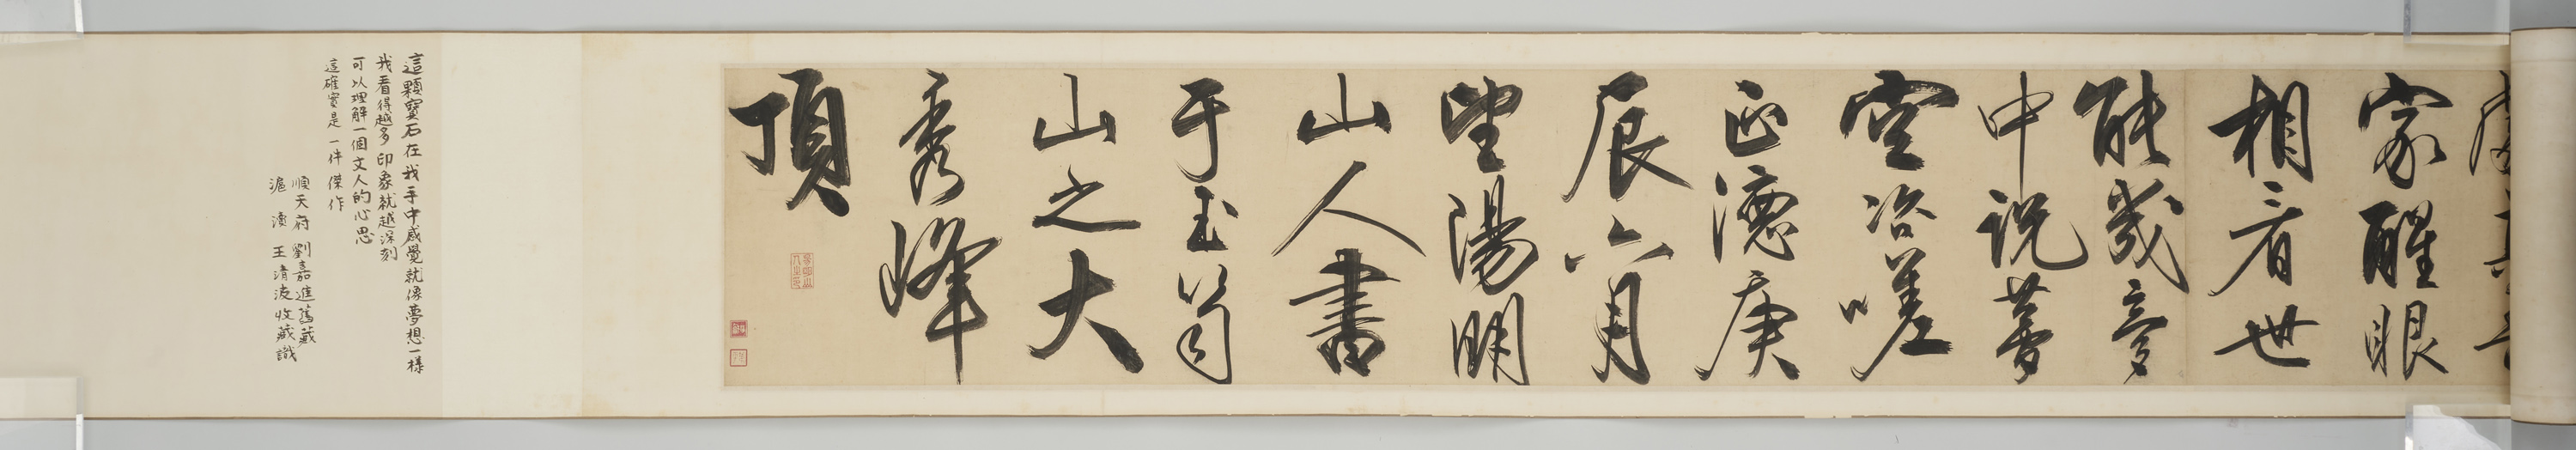 家醒眼
相看世
能幾夢
中說夢
空咨嗟
正德庚
辰六月
望陽明
山人書
于玉笥
山之大
秀峰
頂
這顆寶石在我手中感覺就像夢想一樣
我看得越多印象就越深刻
可以理解一個文人的心思
這確實是一件傑作
順天府劉嘉進舊藏
滬瀆王清波收藏識